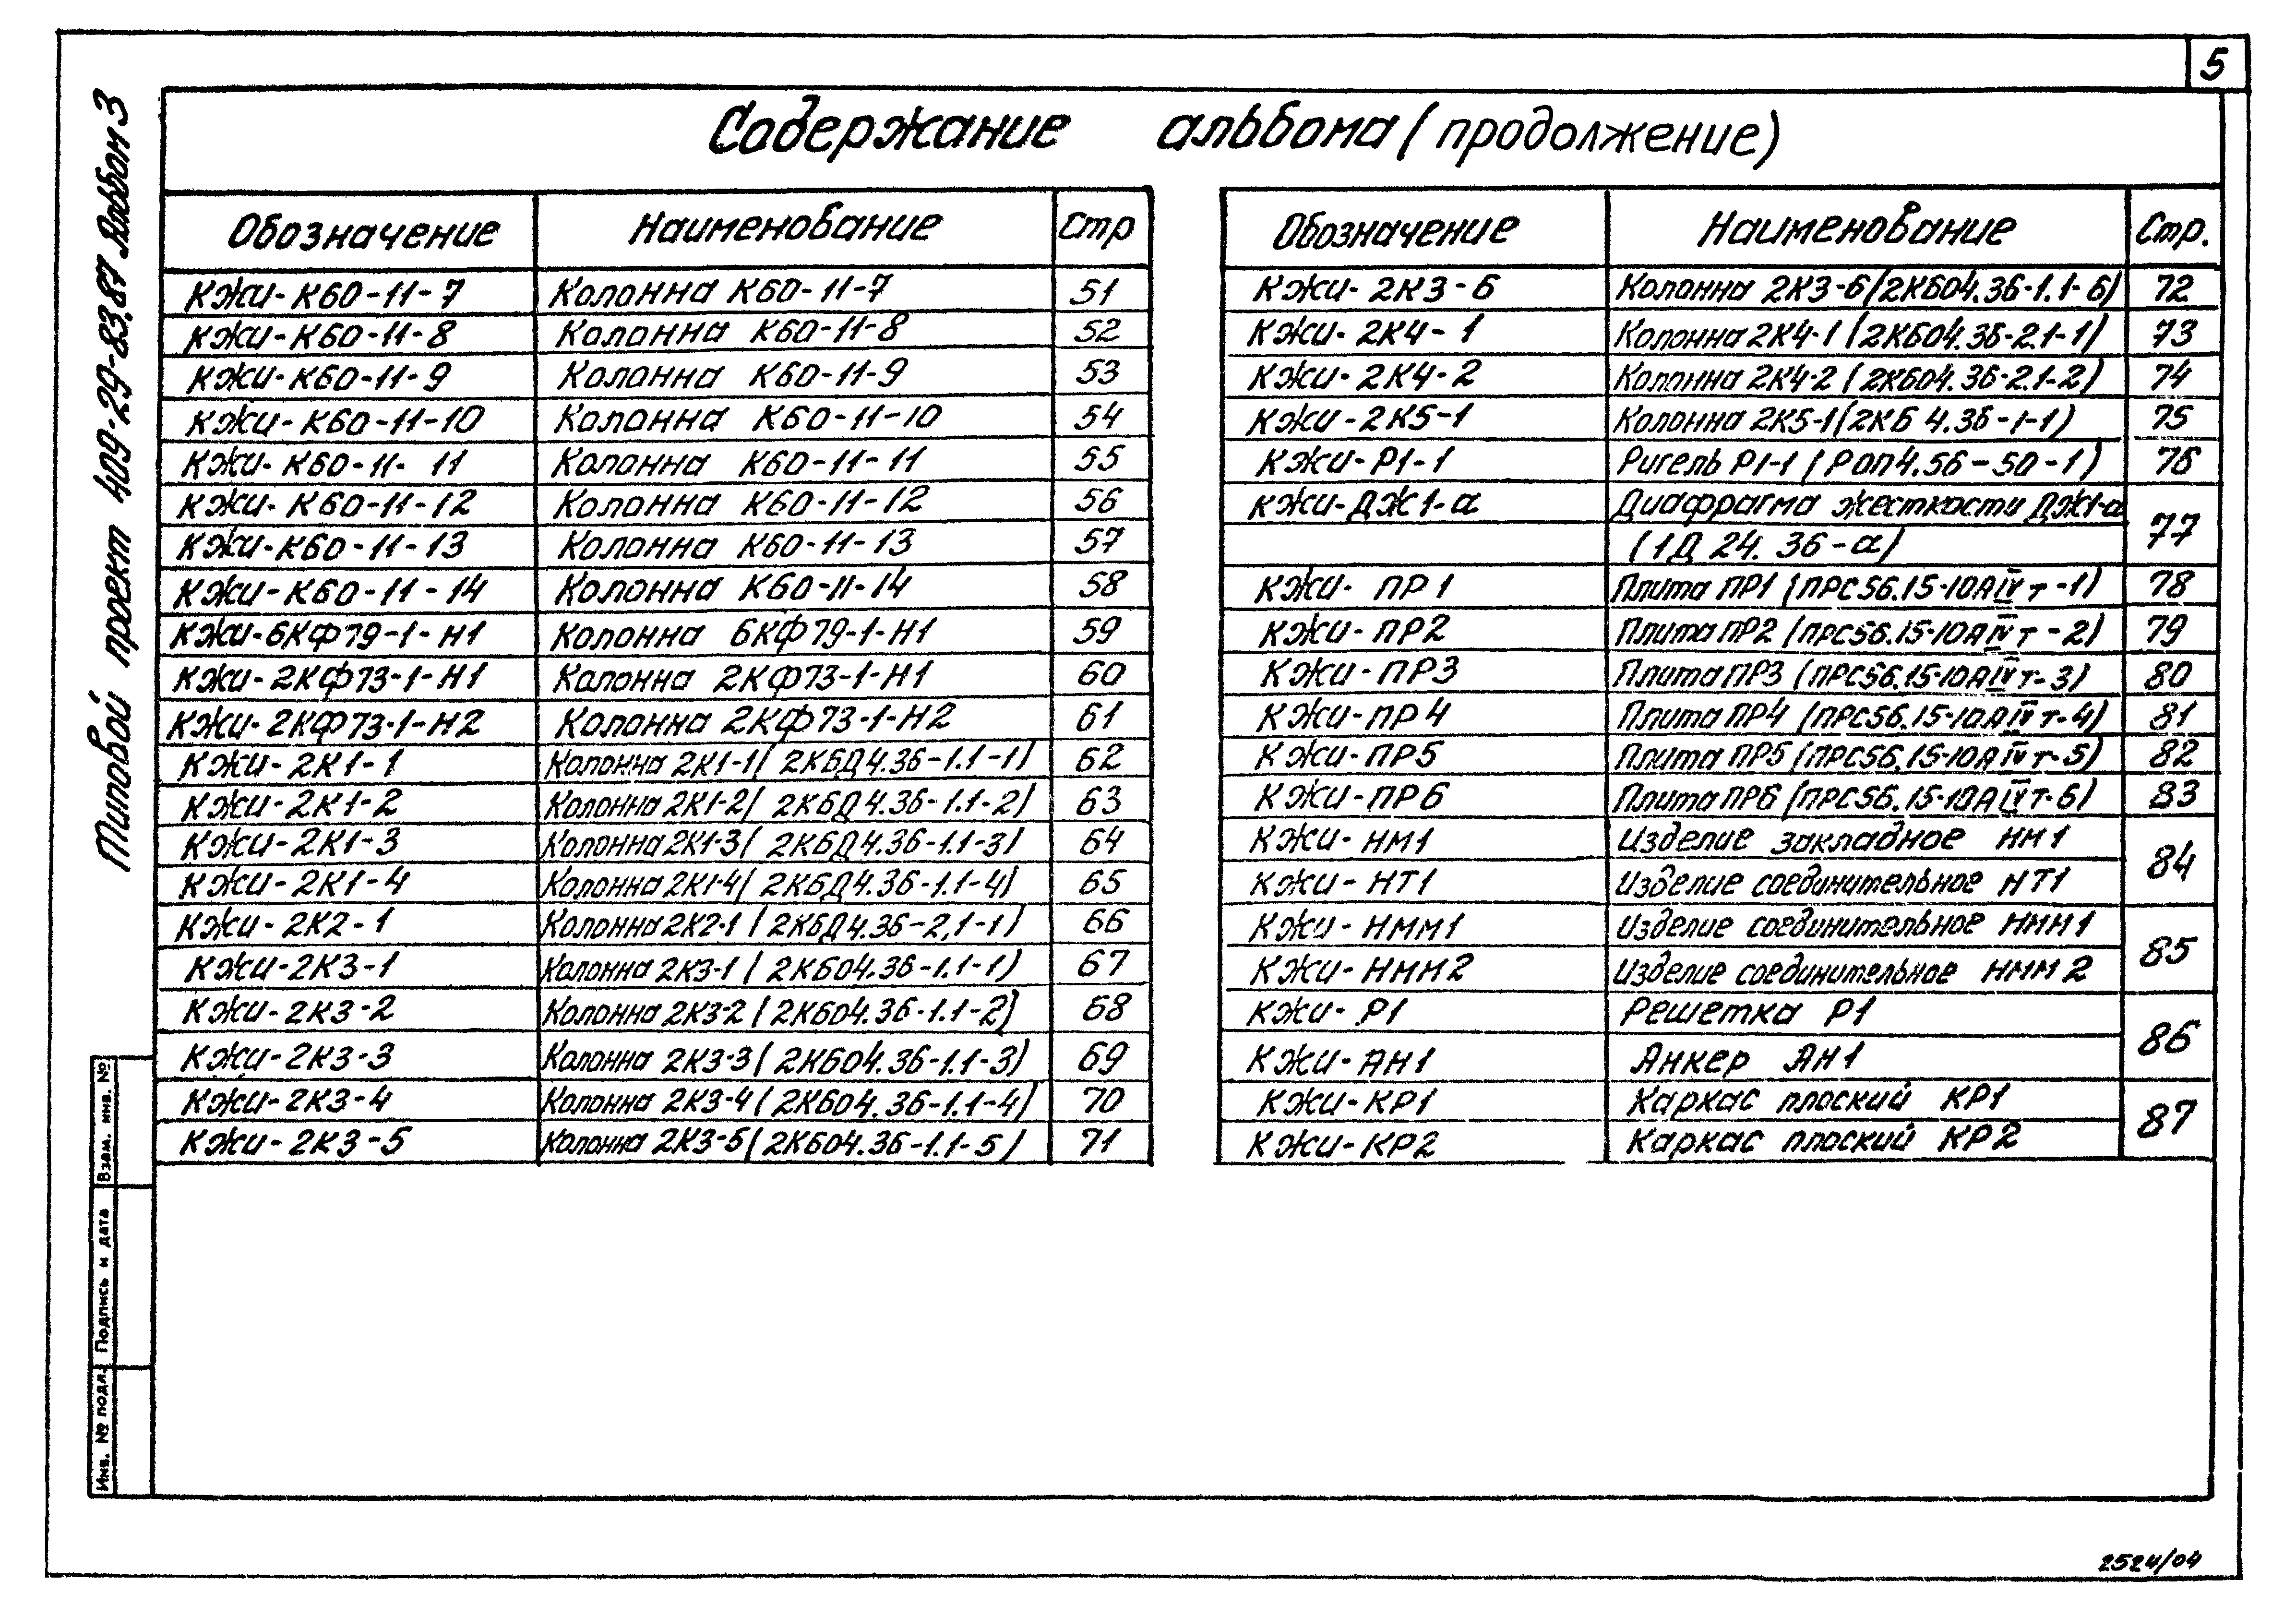 5
Типовой проект 409-29-83.87 Альбом 3
Содержание альбома (продолжение)
Обозначение Наименование Стр
КЖИ-К60-11-7 Колонна К60-11-7 51
КЖИ-К60-11-8 Колонна К60-11-8 52
КЖИ-К60-11-9 Колонна К60-11-9 53
КЖИ-К60-11-10 Колонна К60-11-10 54
КЖИ-К60-11-11 Колонна К60-11-11 55
КЖИ-К60-11-12 Колонна К60-11-12 56
КЖИ-К60-11-13 Колонна К60-11-13 57
КЖИ-К60-11-14 Колонна К60-11-14 58
КЖИ-6КФ79-1-Н1 Колонна 6КФ79-1-Н1 59
КЖИ-2КФ73-1-Н1 Колонна 2КФ73-1-Н1 60
КЖИ-2КФ73-1-Н2 Колонна 2КФ73-1-Н2 61
КЖИ-2К1-1 Колонна 2К1-1 (2КБД4.36-1.1-1) 62
КЖИ-2К1-2 Колонна 2К1-2 (2КБД4.36-1.1-2) 63
КЖИ-2К1-3 Колонна 2К1-3 (2КБД4.36-1.1-3) 64
КЖИ-2К1-4 Колонна 2К1-4 (2КБД4.36-1.1-4) 65
КЖИ-2К2-1 Колонна 2К2-1 (2КБД4.36-2,1-1) 66
КЖИ-2К3-1 Колонна 2К3-1 (2КБ04.36-1.1-1) 67
КЖИ-2К3-2 Колонна 2К3-2 (2КБ04.36-1.1-2) 68
КЖИ-2К3-3 Колонна 2К3-3 (2КБ04.36-1.1-3) 69
КЖИ-2К3-4 Колонна 2К3-4 (2КБ04.36-1.1-4) 70
КЖИ-2К3-5 Колонна 2К3-5 (2КБ04.36-1.1-5) 71
Обозначение Наименование Стр.
КЖИ-2К3-6 Колонна 2К3-6 (2КБ04.36-1.1-6) 72
КЖИ-2К4-1 Колонна 2К4-1 (2КБ04.36-2.1-1) 73
КЖИ-2К4-2 Колонна 2К4-2 (2КБ04.36-2.1-2) 74
КЖИ-2К5-1 Колонна 2К5-1 (2КБ 4.36-1-1) 75
КЖИ-Р1-1 Ригель Р1-1 (РОП4.56-50-1) 76
КЖИ-ДЖ1-а Диафрагма жесткости ДЖ1-а 77
(1Д 24.36-а)
КЖИ-ПР1 Плита ПР1 (ПРС56.15-10АIVт-1) 78
КЖИ-ПР2 Плита ПР2 (ПРС56.15-10АIVт-2) 79
КЖИ-ПР3 Плита ПР3 (ПРС56.15-10АIVт-3) 80
КЖИ-ПР4 Плита ПР4 (ПРС56.15-10АIVт-4) 81
КЖИ-ПР5 Плита ПР5 (ПРС56.15-10АIVт-5) 82
КЖИ-ПР6 Плита ПР6 (ПРС56.15-10АIVт-6) 83
КЖИ-НМ1 Изделие закладное НМ1 84
КЖИ-НТ1 Изделие соединительное НТ1
КЖИ-НММ1 Изделие соединительное НММ1 85
КЖИ-НММ2 Изделие соединительное НММ2
КЖИ-Р1 Решетка Р1 86
КЖИ-АН1 Анкер АН1
КЖИ-КР1 Каркас плоский КР1 87
КЖИ-КР2 Каркас плоский КР2
Взам. инв. №
Подпись и дата
Инв. № подл.
2524/04